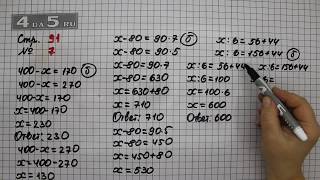 4 ДА 5 RU
Стр. 91
№ 7
400-x=170 (б
400-x=270
400-x=170
x=400-170
x=230
Ответ: 230
400-x=270
x=400-270
x=130
x-80=90·7 (б
x-80=90·5
x-80=90·7
x-80=630
x=630+80
x=710
Ответ: 710
x-80=90·5
x-80=450
x=450+80
x=530
x:6=56+44
x:6=156+44 (б
x:6=56+44
x:6=100
x=100·6
x=600
Ответ: 600
x:6=156+44
x:6=